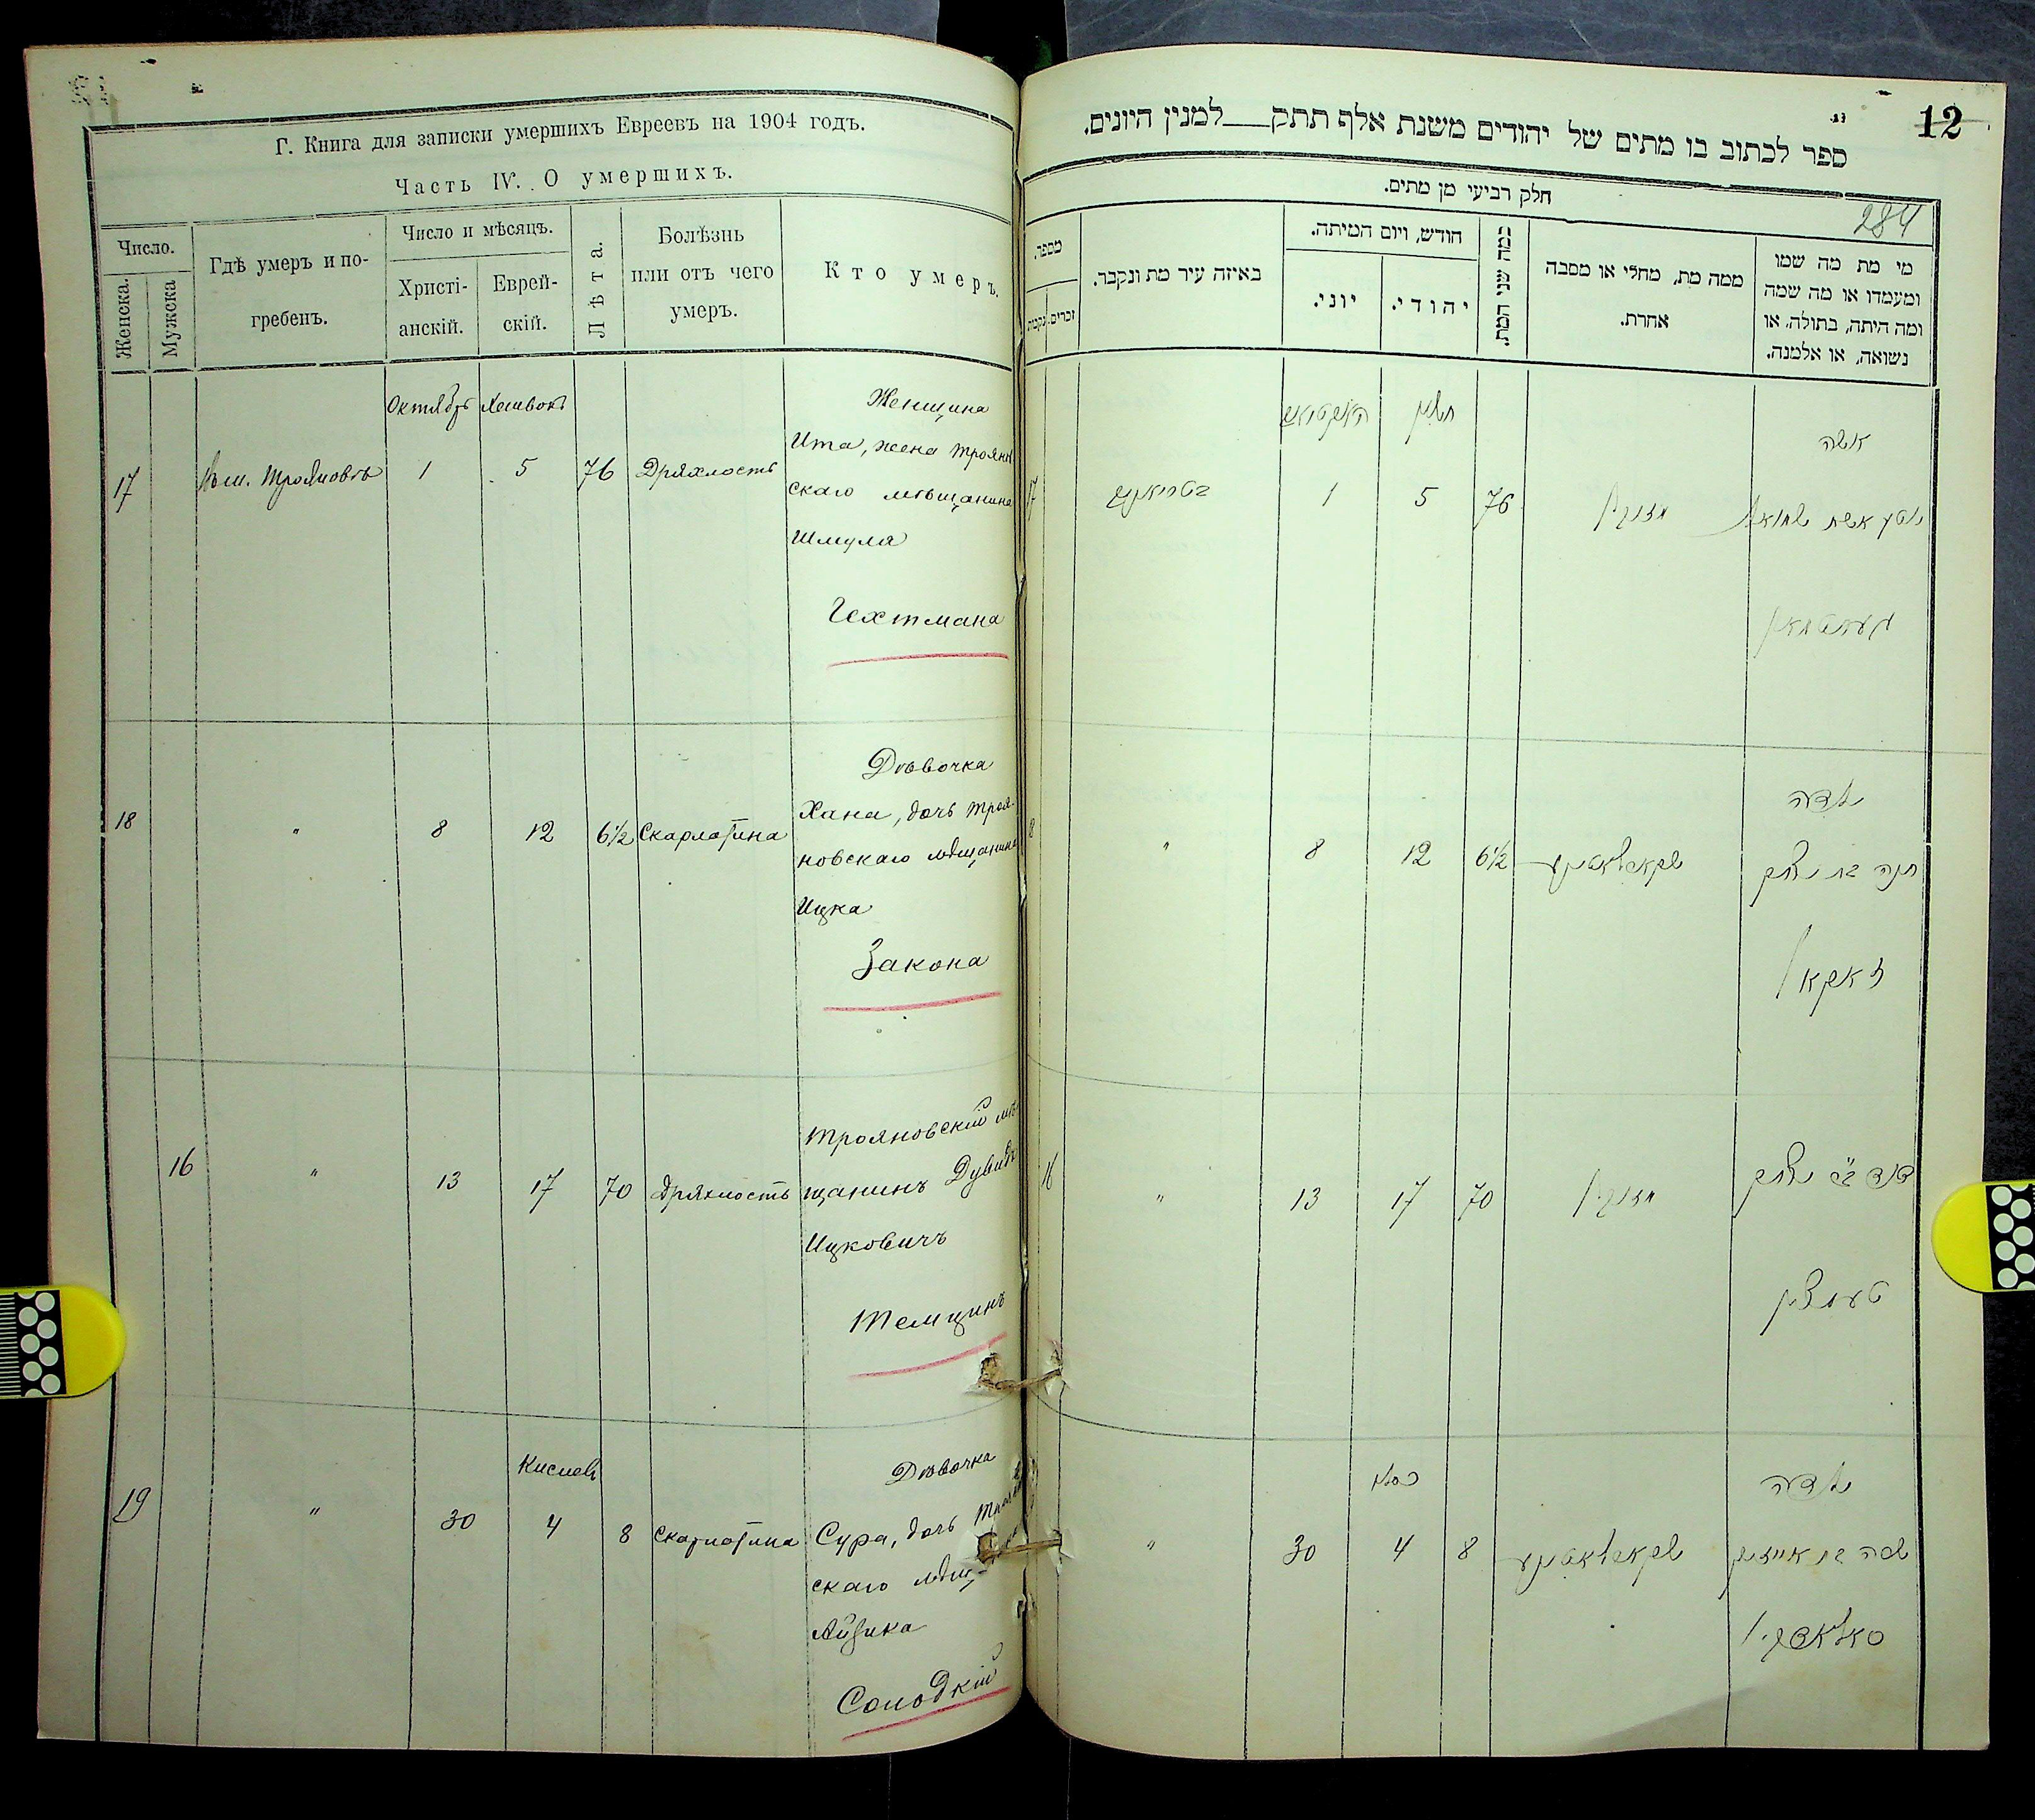 Г. Книга для записки умершихъ Евреевъ на 1904 годъ.
Часть IV. О умершихъ.
Число.
Женска.
Мужска
Гдѣ умеръ и по-
гребенъ.
Число и мѣсяцъ.
Христі-
анскій.
Еврей-
скій.
Лѣта.
Болѣзнь
или отъ чего
умеръ.
Кто умеръ.
Октябрь Хешвонъ
17 Трояновъ 1 5 76 Дряхлость
Женщина
Ита, жена Троянов
скаго мѣщанина
Шмуля
Гехтмана
18 " 8 12 6½ Скарлатина
Дѣвочка
Хана, дочь Троя-
новскаго мѣщанина
Ицка
Закона
16 " 13 17 70 Дряхлость
Трояновскій мѣ
щанинъ Дувидъ
Ицковичъ
Темцинъ
Кислевъ
19 " 30 4 8 Скарлатина
Дѣвочка
Сура, дочь
скаго мѣщ-
Айзика
Солодкій
12
ספר לכתוב בו מתים של יהודים משנת אלף תתק___למנין היונים.
חלק רביעי מן מתים.
284
מספר.
זכרים.
נקבות
באיזה עיר מת ונקבר.
חודש, ויום המיתה.
יוני.
יהודי.
כמה שני המת.
ממה מת, מחלי או מסבה
אחרת.
מי מת מה שמו
ומעמדו או מה שמה
ומה היתה, בתולה, או
נשואה, או אלמנה.
חשון
אשה
17 1 5 76 מזוקן
איטע אשת שמואל
געכטמאן
ילדה
8 " 8 12 6½ סקארלאטינע
חנה בת יצחק
זאקאן
16 " 13 17 70 מזוקן
דוד ב"ר יצחק
טעמצין
כסלו
ילדה
" 30 4 8 סקארלאטינע
שרה בת אייזיק
סאלאדקין